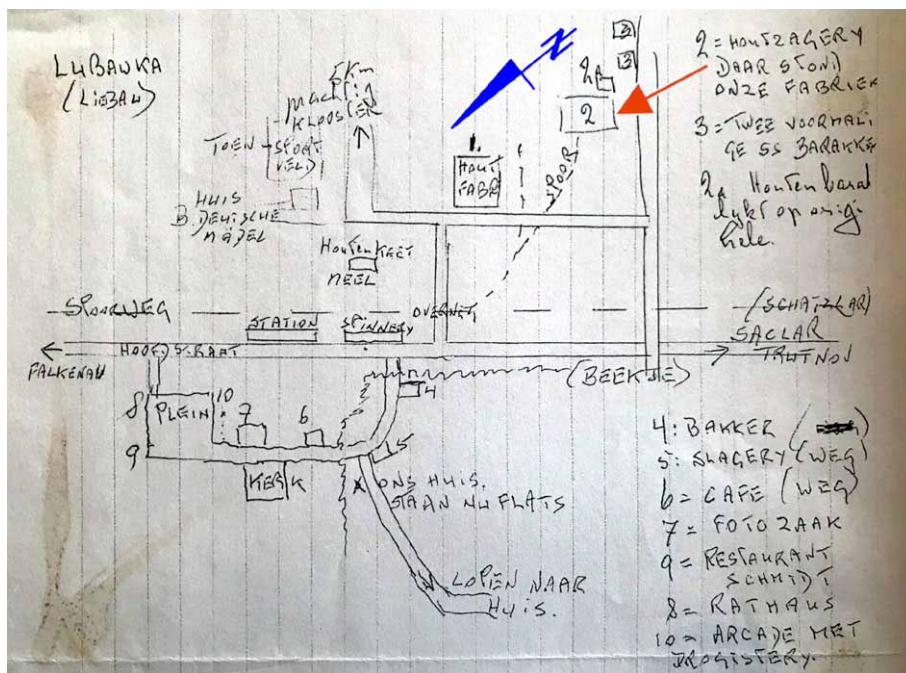 LUBAWKA
(LIEBAU)
5Km
KLOOSTER
TOEN
SPORT
VELD
HUIS
B. DEUTSCHE
MÄDEL
N
1.
HOUT
FABR
SPOOR
2A
2
3
3
2 = HOUTZAGERY
DAAR STOND
ONZE FABRIEK
3 = TWEE VOORMALI
GE SS BARAKKE
2A Houten barak
lykt op origi
nele.
Houten KEET
MEEL
SPOORWEG
STATION
SPINNERY
OVERWEG
(SCHATZLAR)
SACLAR
TRUTNOV
HOOFDSTRAAT
FALKENAU
(BEEKJE)
8
PLEIN
10
7
6
4
5
9
KERK
X ONS HUIS.
STAAN NU FLATS
LOPEN NAAR
HUIS.
4: BAKKER
5: SLAGERY (WEG)
6 = CAFE (WEG)
7 = FOTOZAAK
9 = RESTAURANT
SCHMIDT
8 = RATHAUS
10 = ARCADE MET
DROGISTERY.